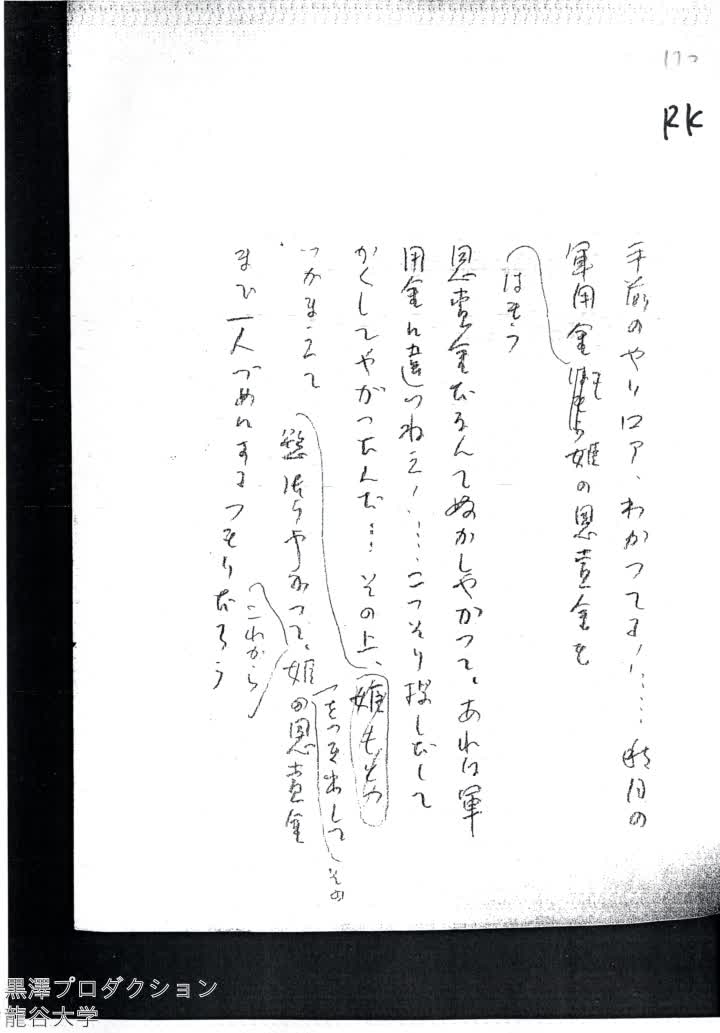 RK
手前のやり口ア、わかつてる!……秋月の
軍用金 姫の恩賞金を
はもう
恩賞金だなんてぬかしやがつて。あれは軍
用金に違つねえ!……こつそり探しだして
かくしてやがつたんだ…… その上、姫も
つかまえて 姫の恩賞金
をつき出して その
まで一人づめにするつもりだろう
これから
黒澤プロダクション
龍谷大学